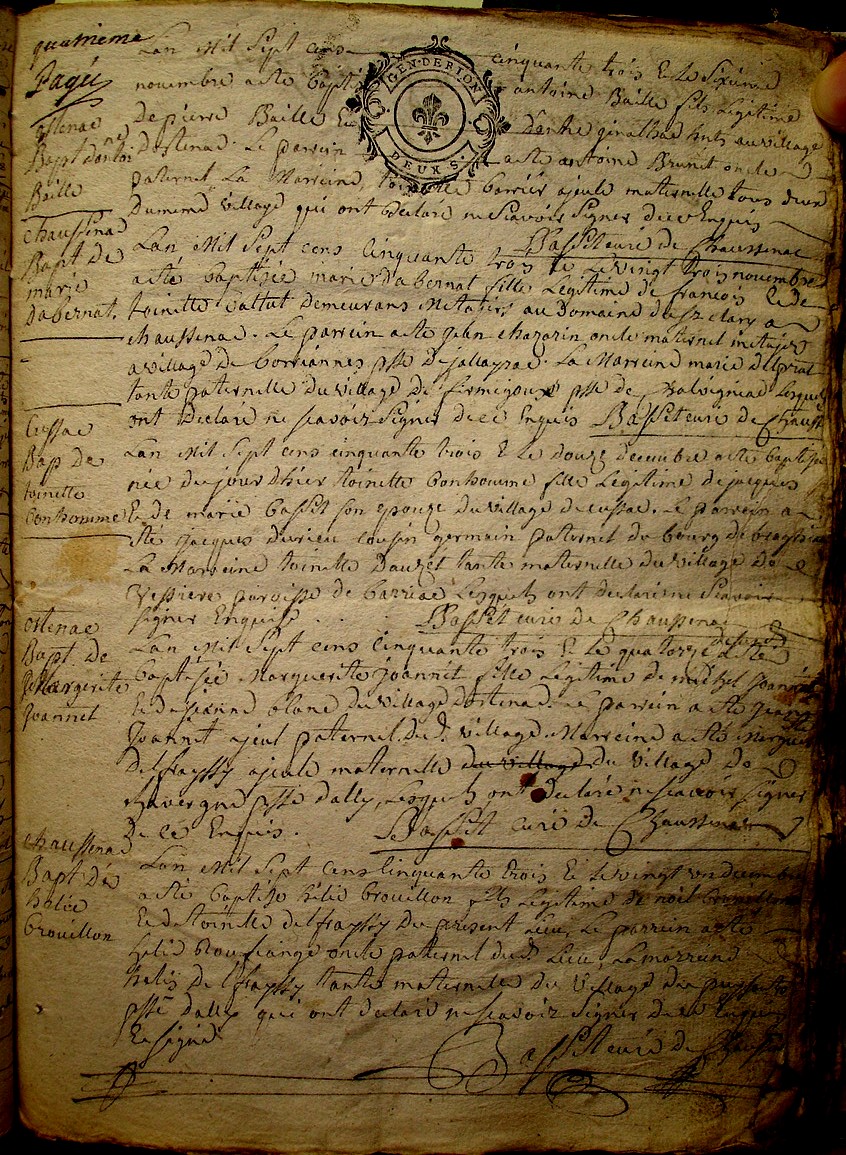 quatrieme
Page
ostenac
Bapt d'antoi
ne
Baille
Lan Mil Sept cens cinquante trois & le Sixieme
novembre a este baptisé antoine Baille fils legitime
de pierre Baille &
d'ostenac. Le parrein a este antoine Brunet oncle
paternel La Marreine, toinette barrier ajeule maternelle tous deux
du meme village qui ont declaré ne scavoir signer de ce Enquis
Basset curé de Chaussenac
GEN·DE RION
DEUX S
chaussenac
Bapt de
marie
Dabernat.
Lan Mil Sept cens Cinquante trois & le vingt trois novembre
a esté baptisée marie Dabernat fille legitime de francois & de
toinette demeurans Metatiers au Domaine de
chaussenac. Le parrein a este jean chazarin oncle maternel metajer
a village de psse de jalleyrac. La Marreine marie
tante paternelle du village de psse de lesquels
ont declaré ne scavoir signer de ce Enquis Basset curé de Chauss
Cussac
Bap de
toinette
bonhomme
Lan Mil Sept cens cinquante trois & le douze decembre a este baptisée
née du jour d'hier toinette bonhomme fille legitime de jacques
& de marie basset son epouze du village de cussac. Le parrein a
este jacques durieu cousin germain paternel du bourg de
La Marreine toinette Dauzet tante maternelle du village de
Vessiere paroisse de barriac Lesquels ont declaré ne scavoir
signer Enquis . . . Basset curé de Chaussenac
ostenac
Bapt. de
Margerite
Joannet
Lan Mil Sept cens Cinquante trois & le quatorze a esté
baptisée Marguerite joannet fille legitime de michel joannet
& de jeanne du village d'ostenac. Le parrein a este
Joannet ajeul paternel du d. village Marreine a esté
Delfayssy ajeule maternelle du village du village de
chavergne psse d'ally, Lesquels ont declaré ne scavoir signer
de ce Enquis. Basset curé de Chaussenac
chaussenac
Bapt de
hélie
brouillon
Lan Mil Sept cens Cinquante trois & le vingt un decembre
a esté baptise hélie brouillon fils legitime de noel brouillon
& de toinette delfayssy du present lieu, Le parrein a esté
helie oncle paternel du d. Lieu, La marreine
helis delfayssy tante maternelle du village de
psse d'ally qui ont declaré ne scavoir signer de ce Enquis
& signé
Basset curé de Chaussenac